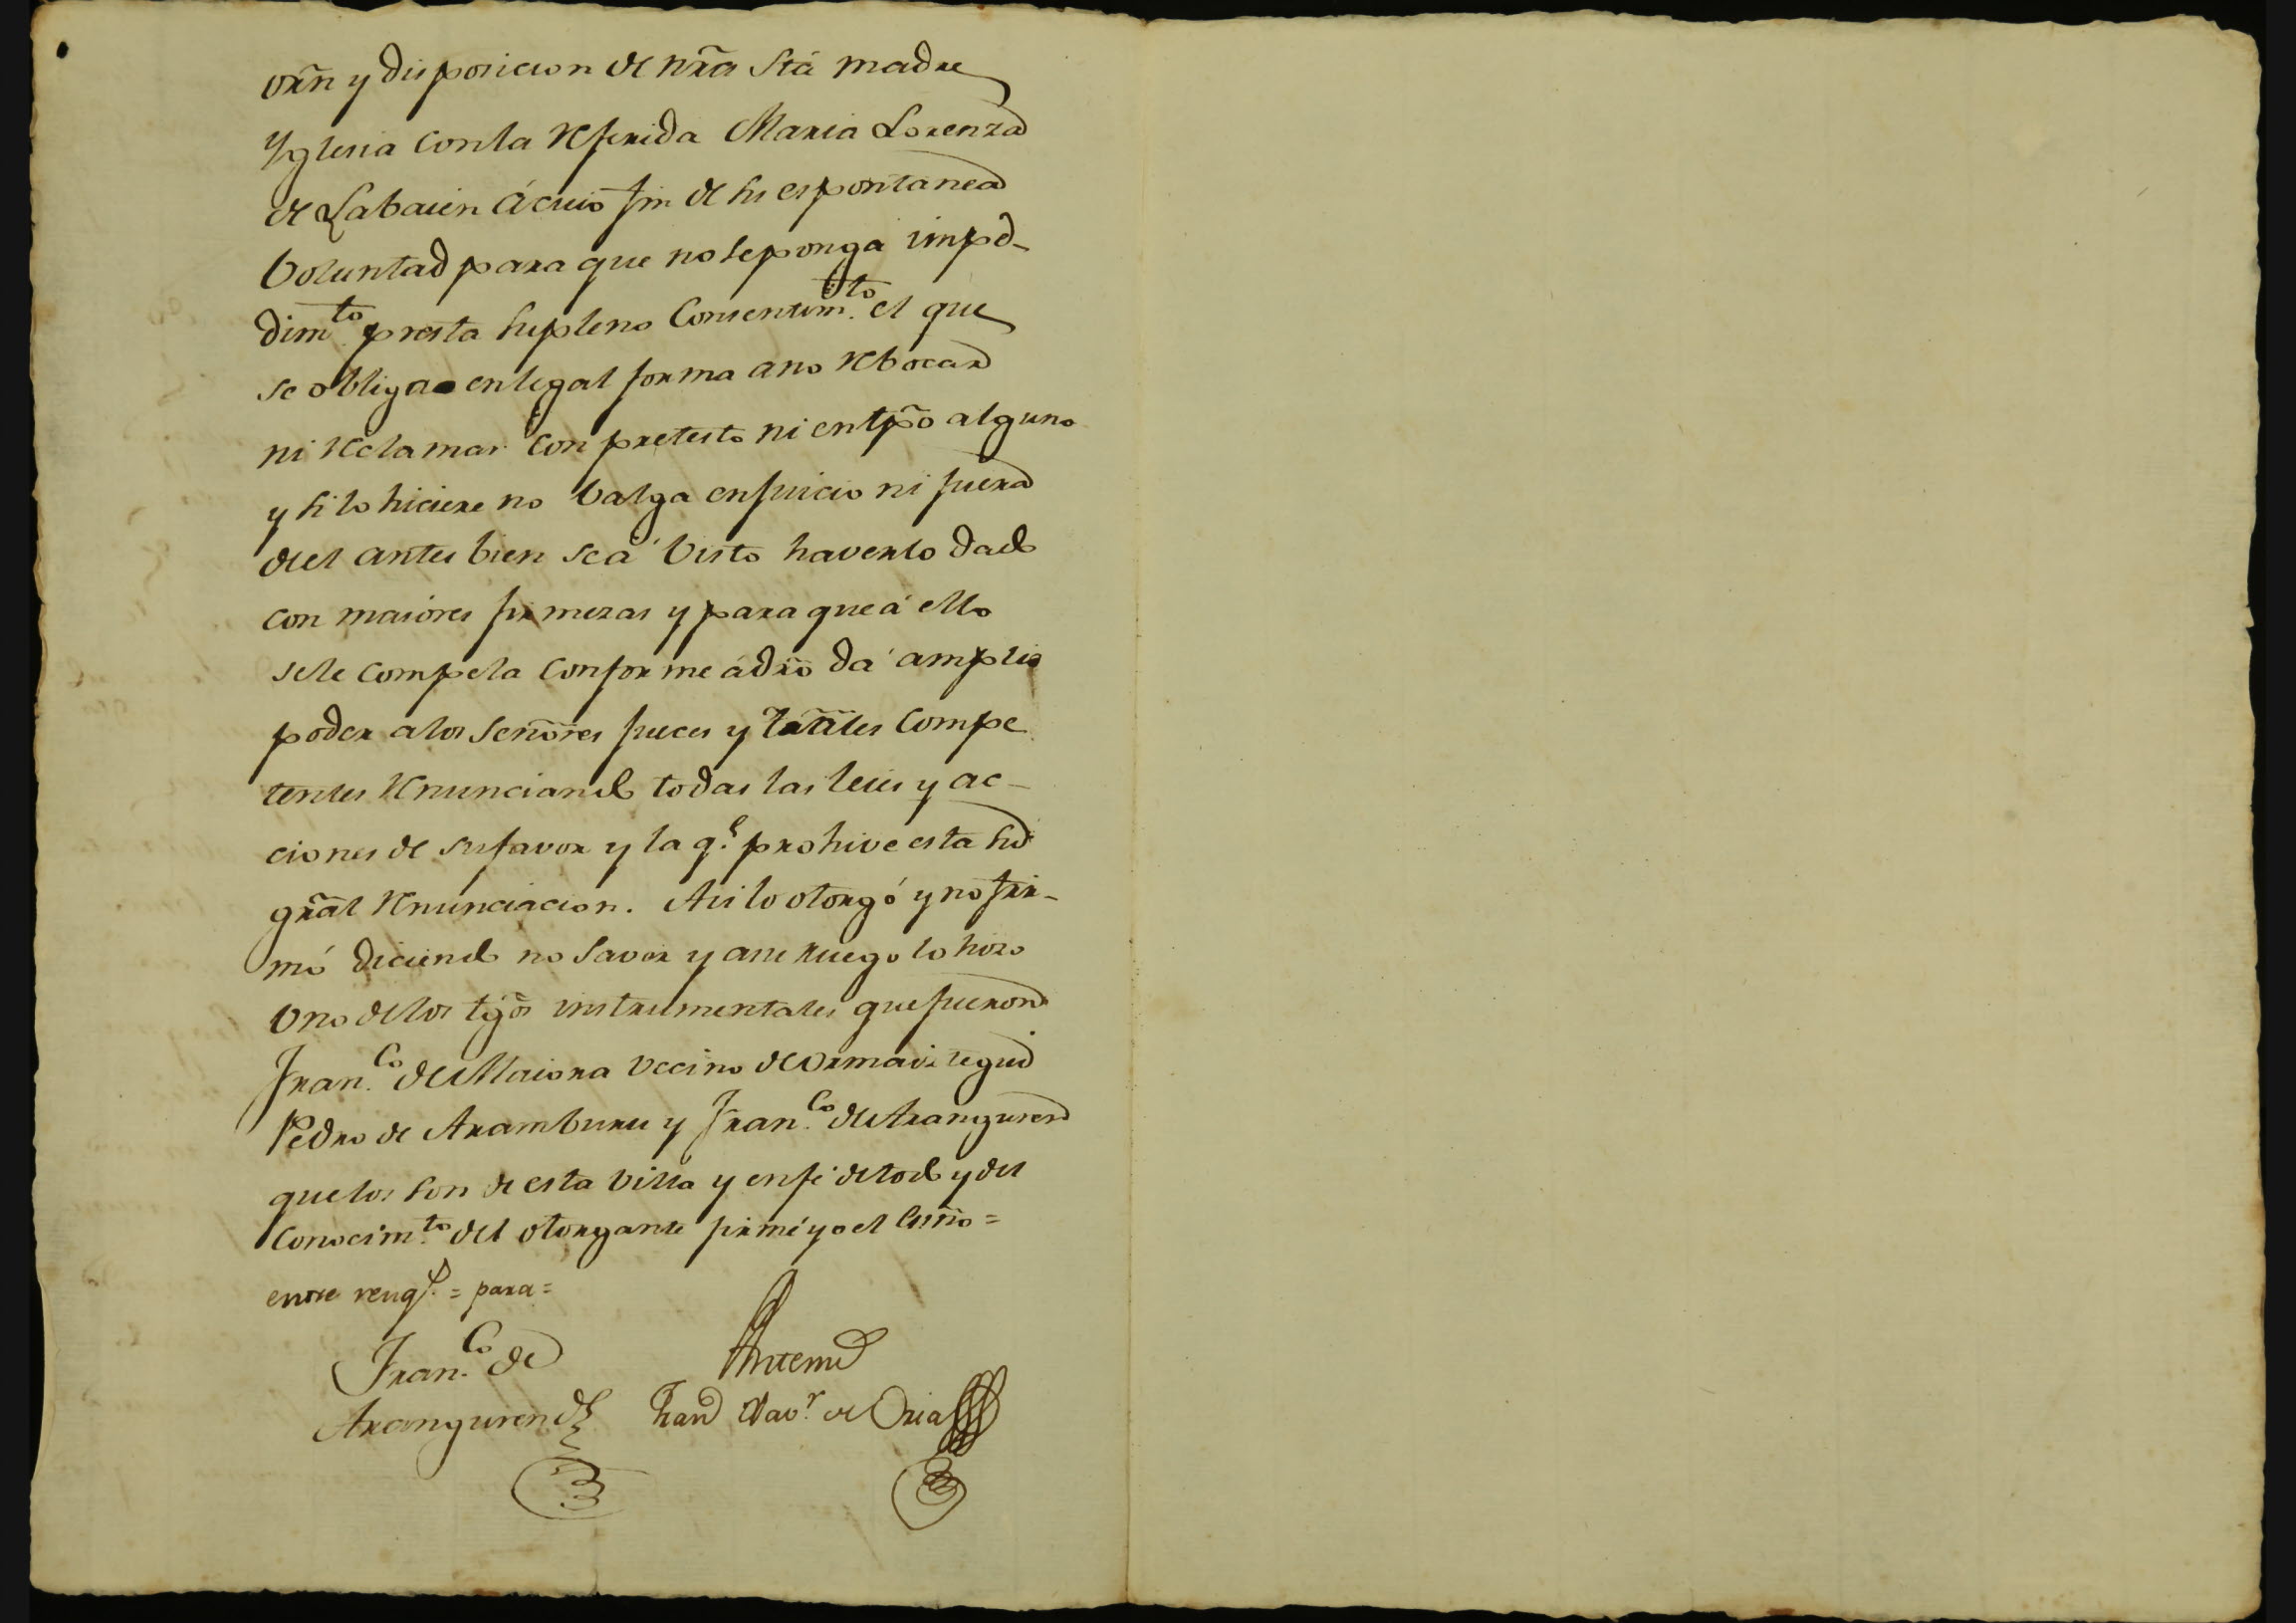 orñ y disposicion de nrã Stã madre
Yglesia con la referida Maria Lorenza
de Labaien á cuio fin de su espontanea
Voluntad para que no se ponga imped-
dimto. presta su pleno Consentimto. el que
se obliga en legal forma a no rebocar
ni reclamar con pretesto ni en tpõ alguno
y si lo hiciere no Valga en juicio ni fuera
de el antes bien sea Visto haverlo dado
con maiores firmezas y para que á ello
se le compela conforme á drõ dá amplio
poder a los Señores jueces y tribales Compe
tentes renunciando todas las leies y ac-
ciones de su favor y la qe. prohive esta su
grãl renunciacion. Asi lo otorgó y no fir-
mó diciendo no Saver y a su ruego lo hizo
Uno de los tgõs instrumentales que fueron
Franco. de Maiora Vecino de Ormaiztegui
Pedro de Aramburu y Franco. de Aranguren
que los son de esta Villa y en fé de todo y del
Conocimto. del otorgante firmé yo el essño =
entre rengs. = para =
Franco. de Aranguren
Antemi
Xavr. de Oria